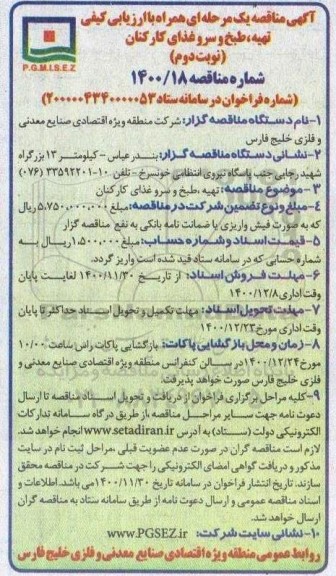 آگهی مناقصه یک مرحله ای همراه با ارزیابی کیفی
تهیه، طبخ و سرو غذای کارکنان
(نوبت دوم)
P.G.M.I.S.E.Z
شماره مناقصه ۱۴۰۰/۱۸
(شماره فراخوان در سامانه ستاد ۲۰۰۰۰۰۴۳۴۰۰۰۰۰۵۳)
۱-نام دستگاه مناقصه گزار: شرکت منطقه ویژه اقتصادی صنایع معدنی
و فلزی خلیج فارس
۲-نشانی دستگاه مناقصه گزار: بندرعباس - کیلومتر ۱۳ بزرگراه
شهید رجایی جنب پاسگاه نیروی انتظامی خونسرخ - تلفن ۱۰-۳۳۵۹۲۲۰۱ (۰۷۶)
۳-موضوع مناقصه: تهیه، طبخ و سرو غذای کارکنان
۴-مبلغ و نوع تضمین شرکت در مناقصه: مبلغ ۵,۷۵۰,۰۰۰,۰۰۰ ریال
که به صورت فیش واریزی یا ضمانت نامه بانکی به نفع مناقصه گزار
۵-قیمت اسناد و شماره حساب: مبلغ ۱,۵۰۰,۰۰۰ ریال به
شماره حسابی که در سامانه ستاد قید شده است واریز گردد.
۶-مهلت فروش اسناد: از تاریخ ۱۴۰۰/۱۱/۳۰ لغایت پایان
وقت اداری ۱۴۰۰/۱۲/۸
۷-مهلت تحویل اسناد: مهلت تکمیل و تحویل اسناد حداکثر تا پایان
وقت اداری مورخ ۱۴۰۰/۱۲/۲۳
۸-زمان و محل بازگشایی پاکات: بازگشایی پاکات راس ساعت ۱۰:۰۰
مورخ ۱۴۰۰/۱۲/۲۴ در سالن کنفرانس منطقه ویژه اقتصادی صنایع معدنی و
فلزی خلیج فارس صورت خواهد پذیرفت.
۹-کلیه مراحل برگزاری فراخوان از دریافت و تحویل اسناد مناقصه تا ارسال
دعوت نامه جهت سایر مراحل مناقصه از طریق درگاه سامانه تدارکات
الکترونیکی دولت (ستاد) به آدرس www.setadiran.ir انجام خواهد شد.
لازم است مناقصه گران در صورت عدم عضویت قبلی، مراحل ثبت نام در سایت
مذکور و دریافت گواهی امضای الکترونیکی را جهت شرکت در مناقصه محقق
سازند. تاریخ انتشار فراخوان در سامانه تاریخ ۱۴۰۰/۱۱/۳۰ می باشد. اطلاعات و
اسناد مناقصه عمومی و ارسال دعوت نامه از طریق سامانه ستاد به مناقصه گران
ارسال خواهد شد.
۱۰-نشانی سایت شرکت: www.PGSEZ.ir
روابط عمومی منطقه ویژه اقتصادی صنایع معدنی و فلزی خلیج فارس